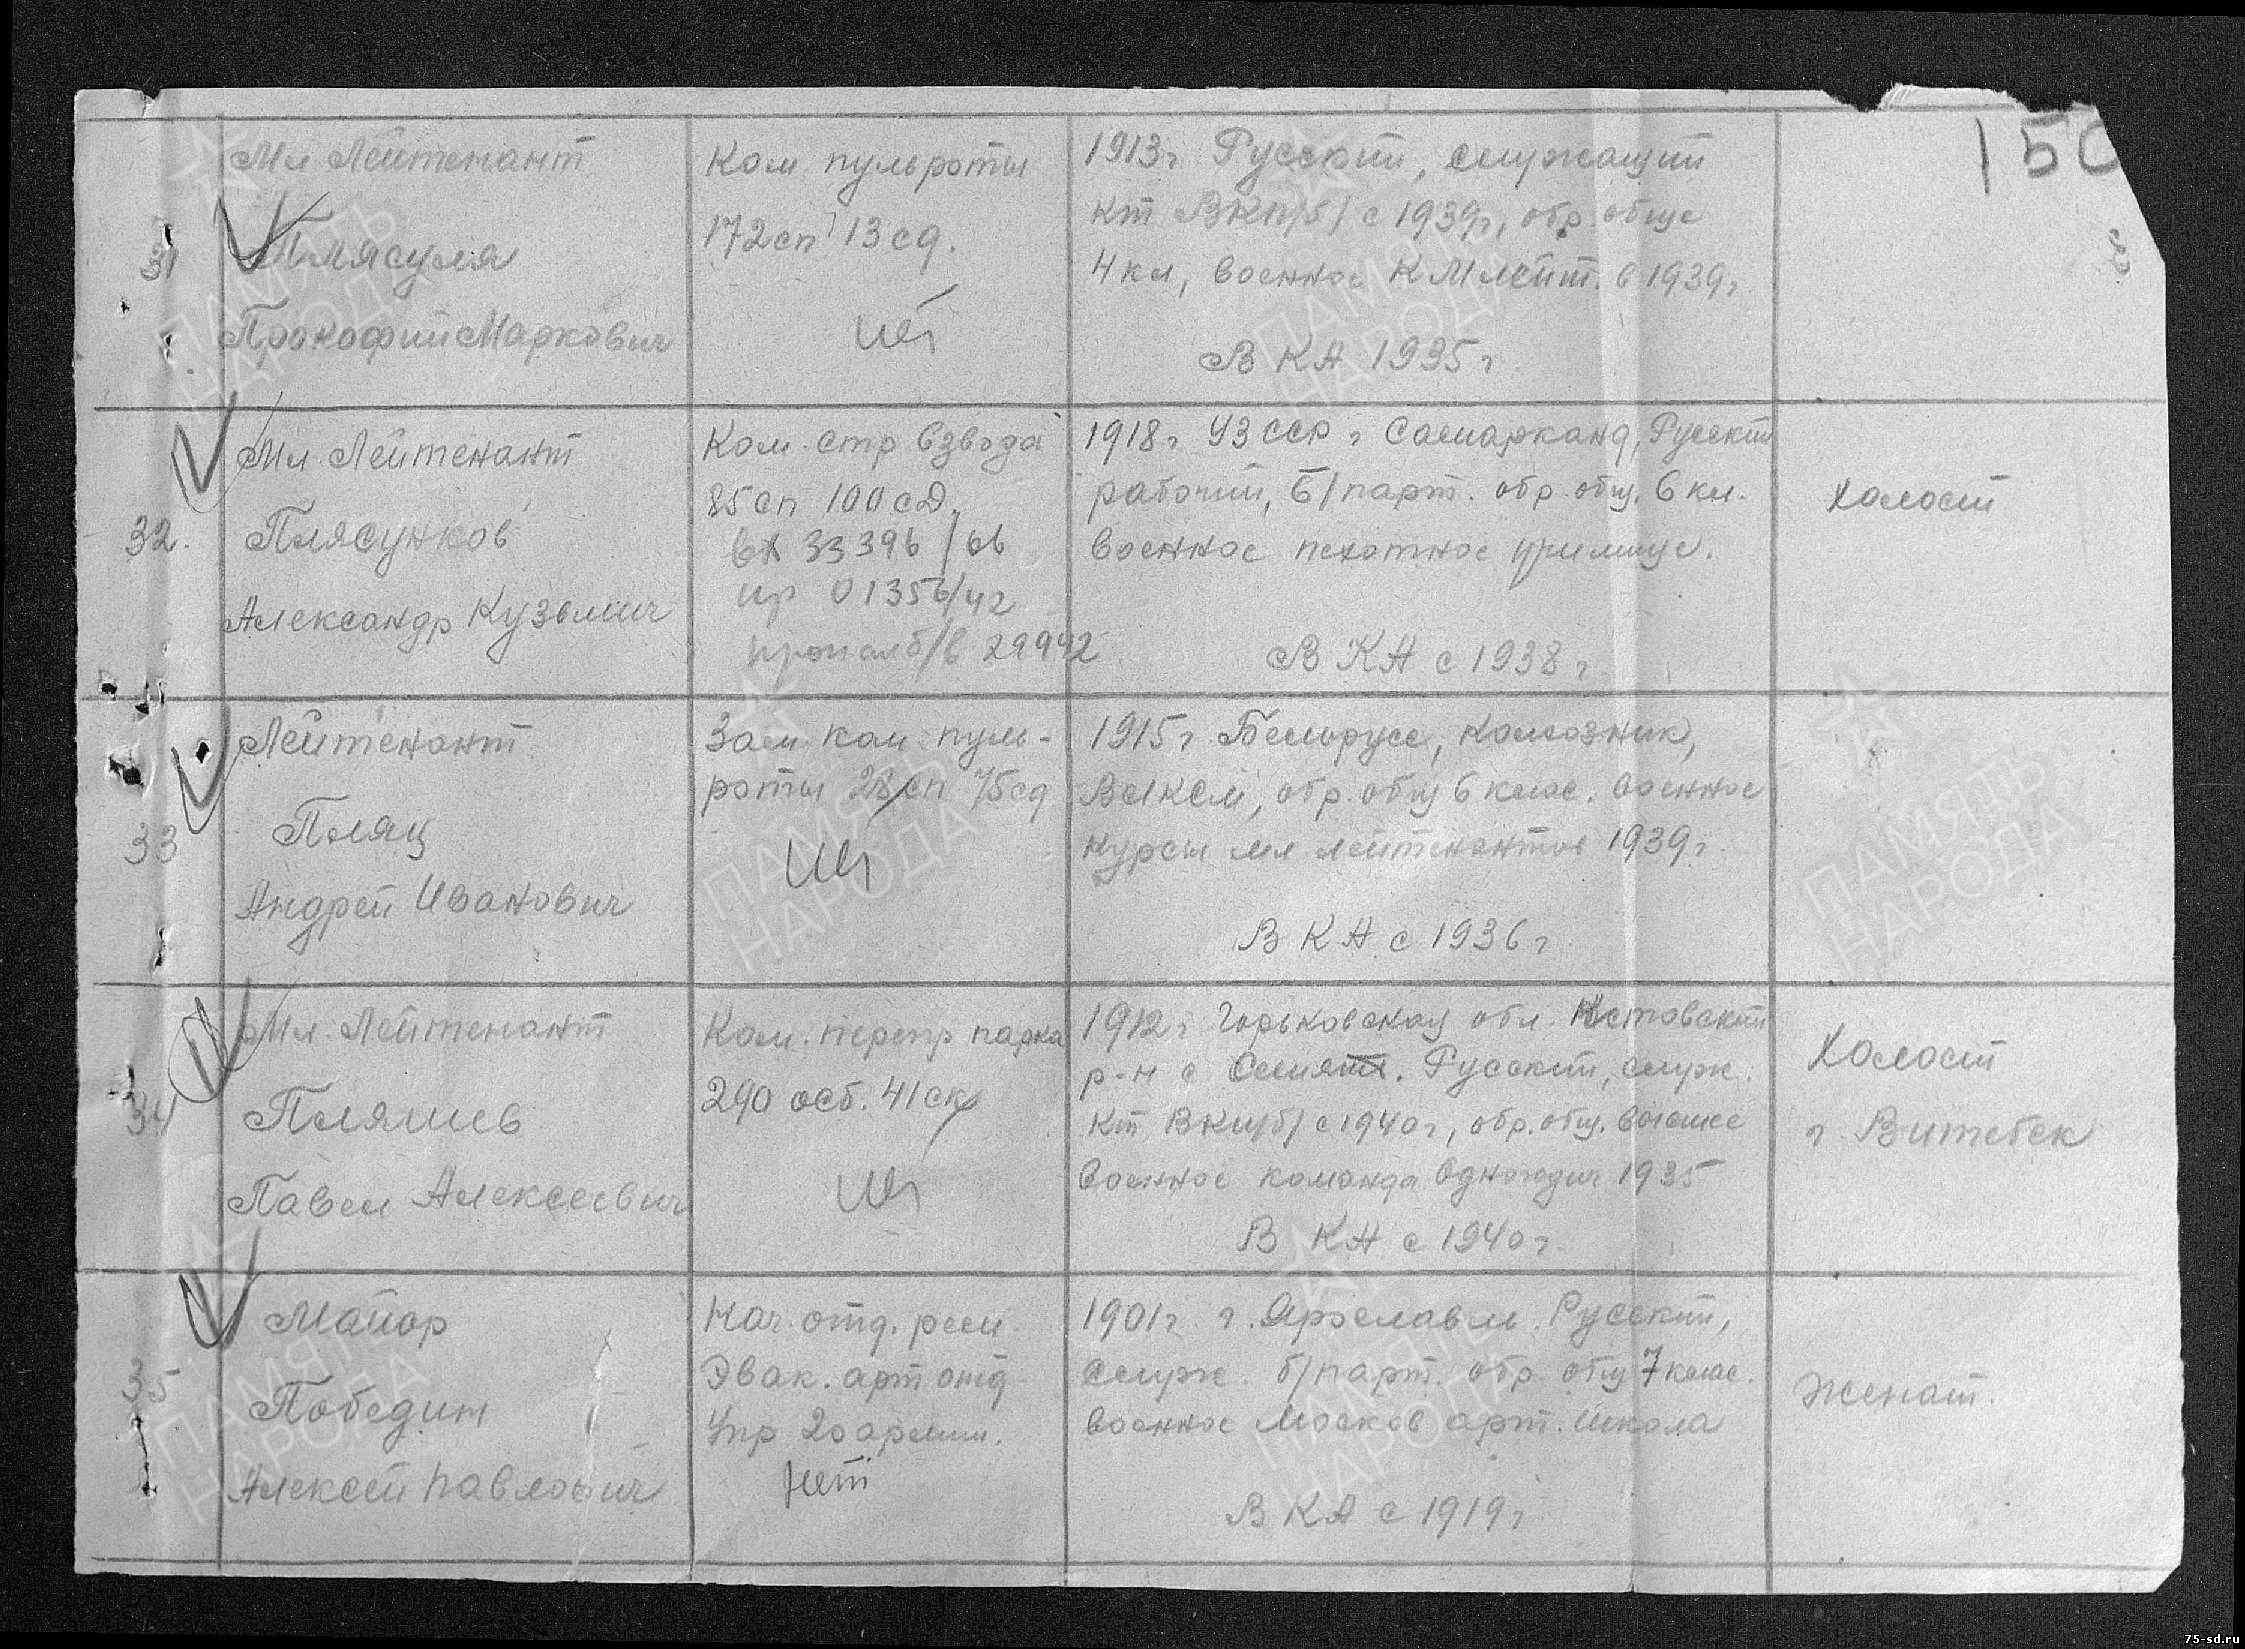 150
31
Мл Лейтенант
Плясуля
Прокофий Маркович
Ком пульроты
172 сп 13 сд.
1913 г Русский, служащий
кт ВКП/б/ с 1939 г, обр. обще
4 кл, военное К Мл лейт. в 1939 г
В КА 1935 г
32.
Мл. Лейтенант
Плясунков
Александр Кузьмич
Ком. стр взвода
85 сп 100 сд.
вх 33396
пр 01356/42
пропал б/в 29942
1918 г УзССР г Самарканд, Русский
рабочий, б/парт. обр. общ. 6 кл.
военное пехотное училище.
В КА с 1938 г
Холост
33
Лейтенант
Пляц
Андрей Иванович
Зам ком пуль-
роты 28 сп 75 сд
1915 г Белорусс, колхозник,
ВЛКСМ, обр. общ 6 клас. военное
курсы мл лейтенантов 1939 г.
В КА с 1936 г
34
Мл. Лейтенант
Пляшев
Павел Алексеевич
Ком. перепр парка
290 осб. 41 ск
1912 г Горьковская обл. Кстовский
р-н с Русский, служ.
кт ВКП/б/ с 1940 г, обр. общ. высшее
военное команда одногодич 1935
В КА с 1940 г.
Холост
г Витебск
35
Майор
Победин
Алексей Павлович
Нач. отд. рем
Эвак. арт отд
Упр 20 армии.
Нет
1901 г г. Ярославль. Русский,
служ. б/парт. обр. общ 7 клас.
военное Москов арт. школа
В КА с 1919 г
Женат.
ПАМЯТЬ
НАРОДА
75-sd.ru